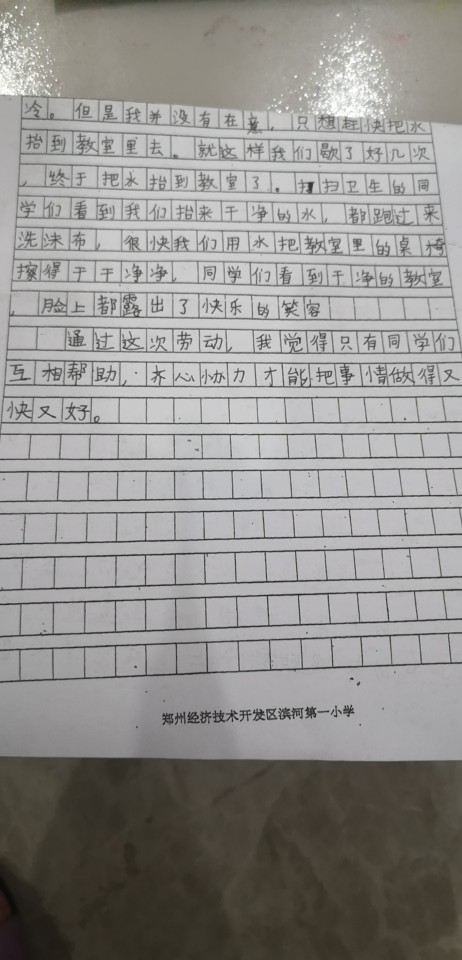 冷。但是我并没有在意，只想赶快把水
抬到教室里去。就这样我们歇了好几次
，终于把水抬到教室了。扫卫生的同
学们看到我们抬来干净的水，都跑过来
洗沫布，很快我们用水把教室里的桌椅
擦得干干净净，同学们看到干净的教室
，脸上都露出了快乐的笑容
通过这次劳动，我觉得只有同学们
互相帮助，齐心协力才能把事情做得又
快又好。
郑州经济技术开发区滨河第一小学